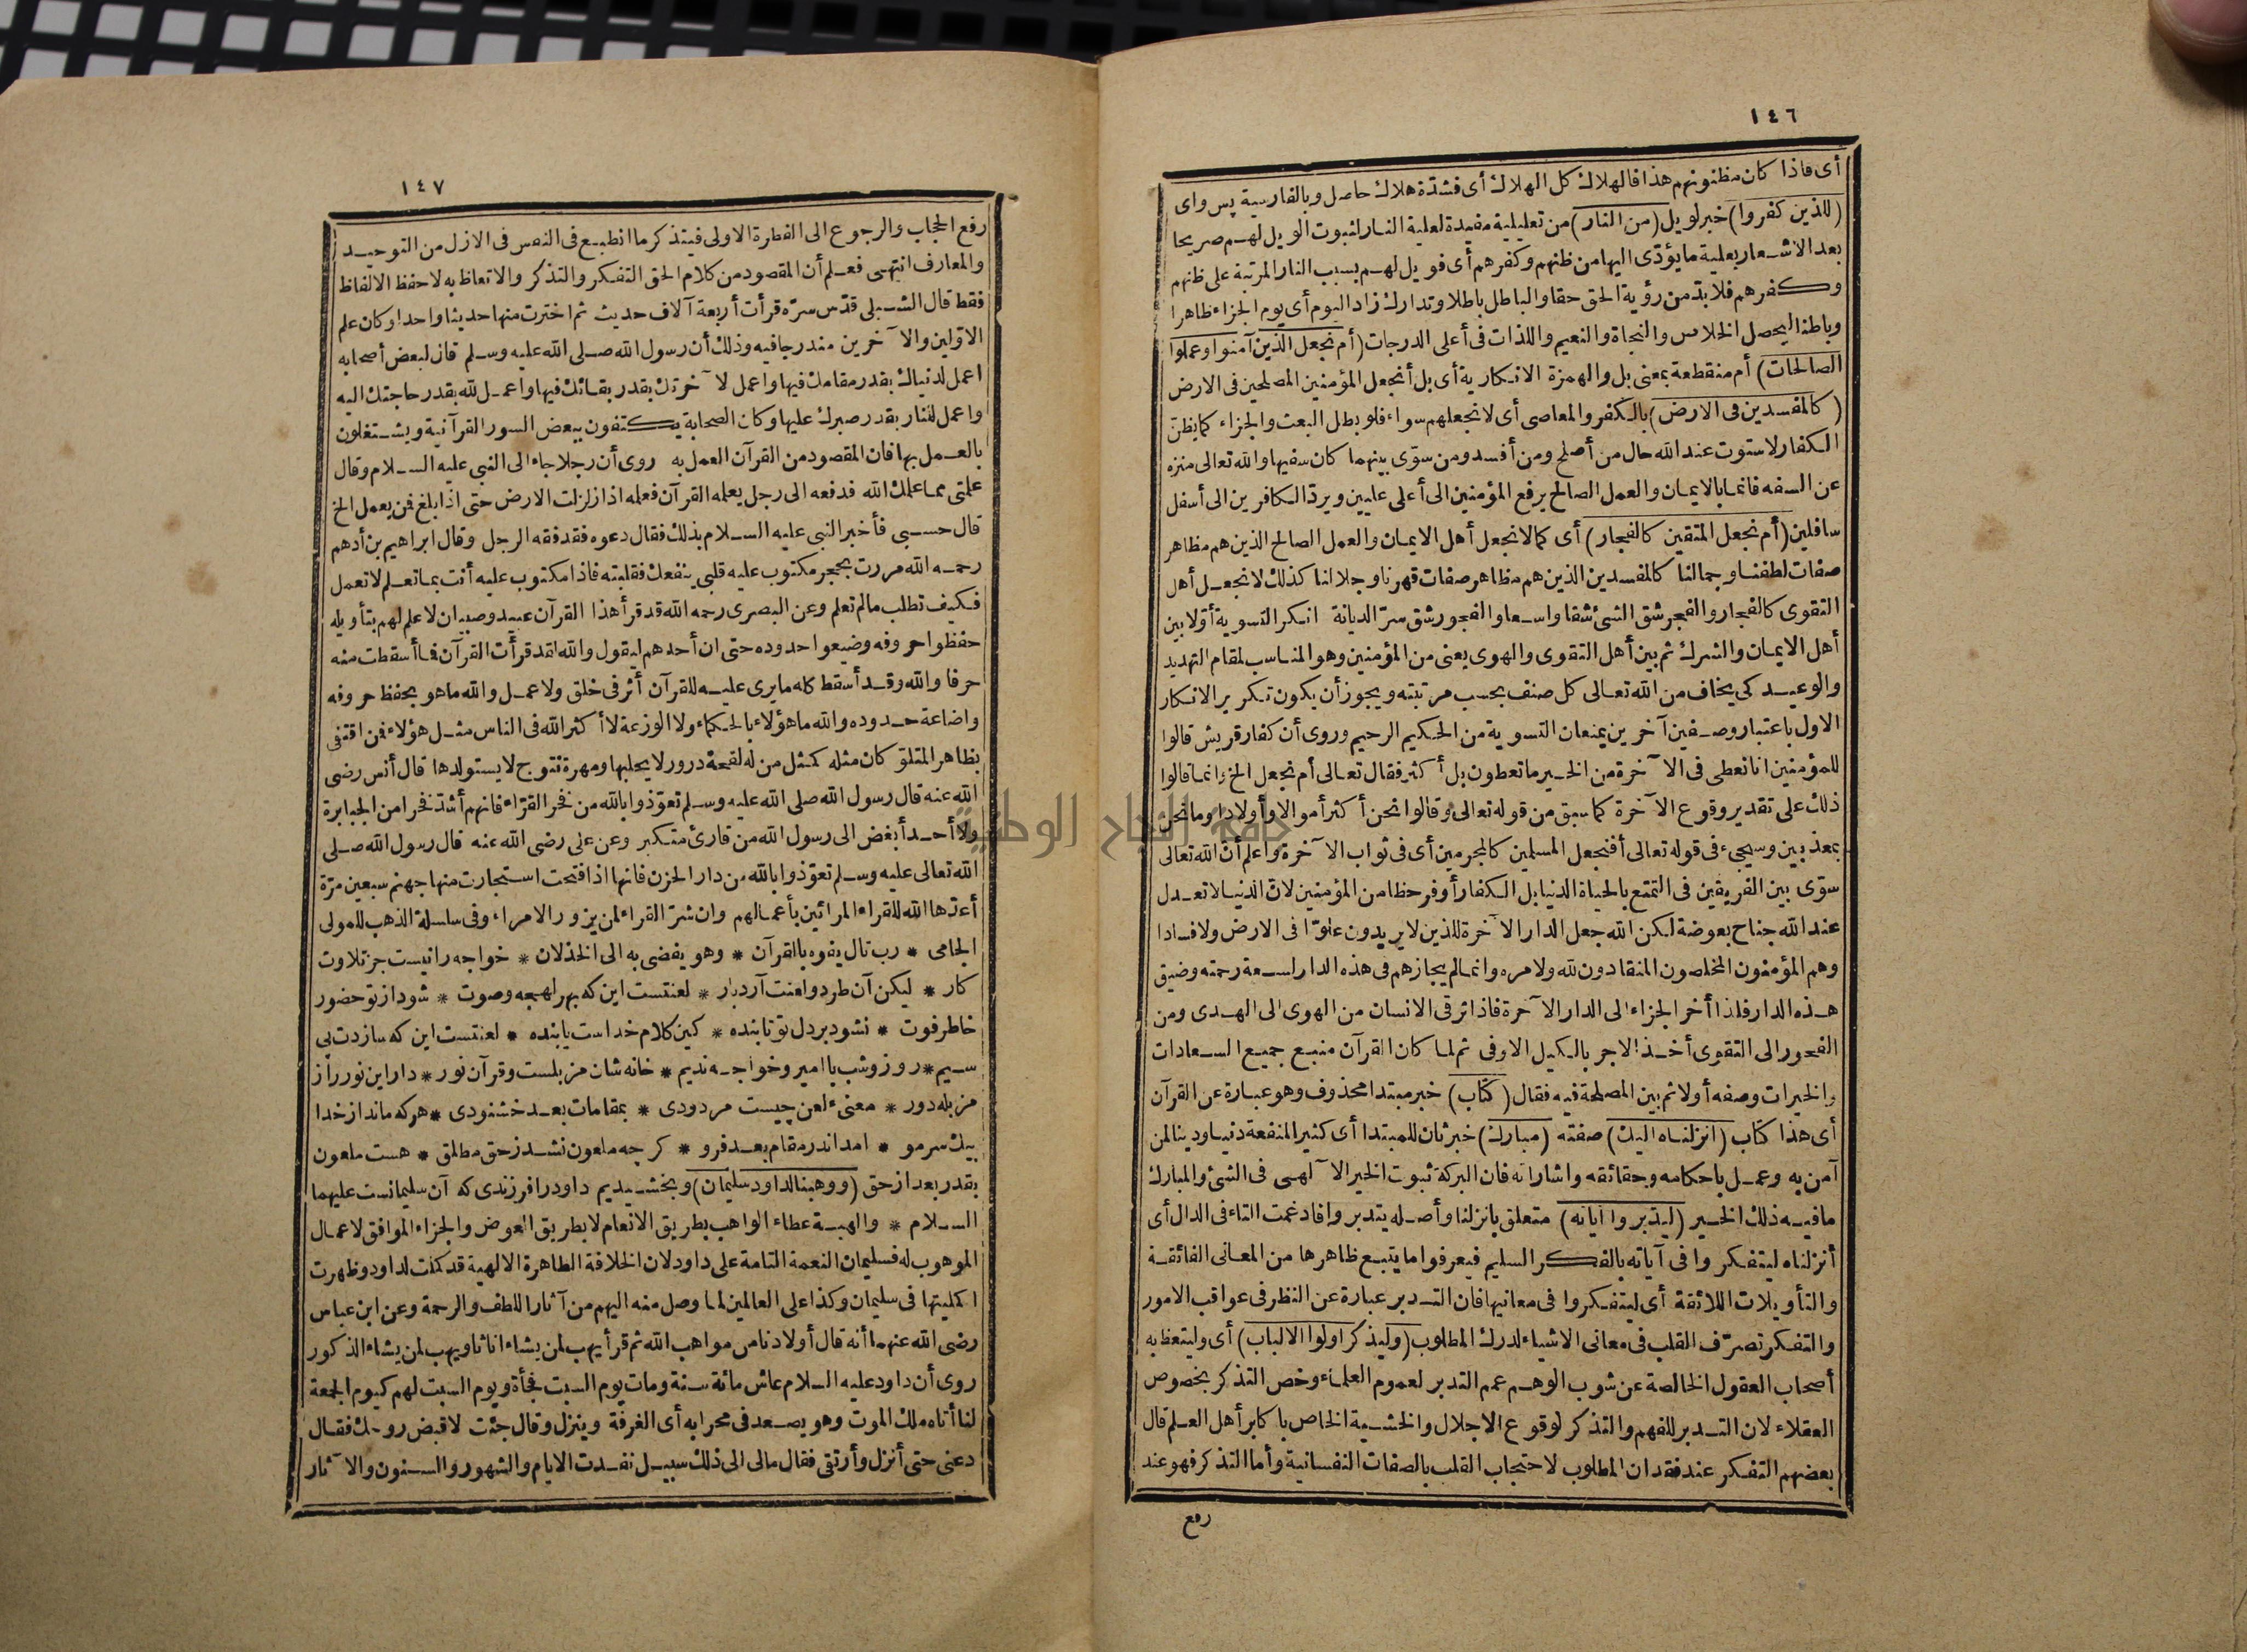 ١٤٦
أى فاذا كان مظنونهم هذا فالهلاك كل الهلاك أى فشدة هلاك حاصل وبالفارسية پس واى
(للذين كفروا) خبر لويل (من النار) من تعليلية مفيدة لعلية النار لثبوت الويل لهم صريحا
بعد الاشعار بعلية ما يؤدّى اليها من ظنهم وكفرهم أى فويل لهم بسبب النار المرتبة على ظنهم
وكفرهم فلا بدّ من رؤية الحق حقا والباطل باطلا وتدارك زاد اليوم أى يوم الجزاء ظاهرا
وباطنا ليحصل الخلاص والنجاة والنعيم واللذات فى أعلى الدرجات (أم نجعل الذين آمنوا وعملوا
الصالحات) أم منقطعة بمعنى بل والهمزة الانكارية أى بل أنجعل المؤمنين المصلحين فى الارض
(كالمفسدين فى الارض) بالكفر والمعاصى أى لا نجعلهم سواء فلو بطل البعث والجزاء كما يظنّ
الكفار لاستوت عند الله حال من أصلح ومن أفسد ومن سوّى بينهما كان سفيها والله تعالى منزه
عن السفه فانما بالايمان والعمل الصالح يرفع المؤمنين الى أعلى عليين ويردّ الكافرين الى أسفل
سافلين (أم نجعل المتقين كالفجار) أى كما لا نجعل أهل الايمان والعمل الصالح الذين هم مظاهر
صفات لطفنا وجمالنا كالمفسدين الذين هم مظاهر صفات قهرنا وجلالنا كذلك لا نجعل أهل
التقوى كالفجار والفجر شق الشئ شقا واسعا والفجور شق ستر الديانة انكر التسوية أوّلا بين
أهل الايمان والشرك ثم بين أهل التقوى والهوى يعنى من المؤمنين وهو المناسب لمقام التهديد
والوعيد كى يخاف من الله تعالى كل صنف بحسب مرتبته ويجوز أن يكون تكرير الانكار
الاول باعتبار وصفين آخرين يمنعان التسوية من الحكيم الرحيم وروى أن كفار قريش قالوا
للمؤمنين انا نعطى فى الآخرة من الخير ما تعطون بل أكثر فقال تعالى أم نجعل الخ وانما قالوا
ذلك على تقدير وقوع الآخرة كما سبق من قوله تعالى وقالوا نحن أكثر أموالا وأولادا وما نحن
بمعذبين وسيجىء فى قوله تعالى أفنجعل المسلمين كالمجرمين أى فى ثواب الآخرة واعلم أن الله تعالى
سوّى بين الفريقين فى التمتع بالحياة الدنيا بل الكفار أوفر حظا من المؤمنين لان الدنيا لا تعدل
عند الله جناح بعوضة لكن الله جعل الدار الآخرة للذين لا يريدون علوّا فى الارض ولا فسادا
وهم المؤمنون المخلصون المنقادون لله ولامره وانما لم يجازهم فى هذه الدار لسعة رحمته وضيق
هذه الدار فلذا أخر الجزاء الى الدار الآخرة فاذا ترقى الانسان من الهوى الى الهدى ومن
الفجور الى التقوى أخذ الاجر بالكيل الاوفى ثم لما كان القرآن منبع جميع السعادات
والخيرات وصفه أولا ثم بين المصلحة فيه فقال (كتاب) خبر مبتدا محذوف وهو عبارة عن القرآن
أى هذا كتاب (انزلناه اليك) صفته (مبارك) خبر ثان للمبتدا أى كثير المنفعة دنيا ودينا لمن
آمن به وعمل باحكامه وحقائقه واشاراته فان البركة ثبوت الخير الآلهى فى الشئ والمبارك
ما فيه ذلك الخير (ليدّبروا آياته) متعلق بانزلنا وأصله يتدبروا فادغمت التاء فى الدال أى
أنزلناه ليتفكروا فى آياته بالفكر السليم فيعرفوا ما يتبع ظاهرها من المعانى الفائقة
والتأويلات اللائقة أى ليتفكروا فى معانيها فان التدبر عبارة عن النظر فى عواقب الامور
والتفكر تصرّف القلب فى معانى الاشياء لدرك المطلوب (وليذكر اولوا الالباب) أى وليتعظ به
أصحاب العقول الخالصة عن شوب الوهم عمم التدبر لعموم العلماء وخص التذكر بخصوص
العقلاء لان التدبر للفهم والتذكر لوقوع الاجلال والخشية الخاص باكابر أهل العلم قال
بعضهم التفكر عند فقدان المطلوب لاحتجاب القلب بالصفات النفسانية وأما التذكر فهو عند
رفع
١٤٧
رفع الحجاب والرجوع الى الفطرة الاولى فيتذكر ما انطبع فى النفس فى الازل من التوحيد
والمعارف انتهى فعلم أن المقصود من كلام الحق التفكر والتذكر والاتعاظ به لا حفظ الالفاظ
فقط قال الشبلى قدّس سرّه قرأت أربعة آلاف حديث ثم اخترت منها حديثا واحدا وكان علم
الاوّلين والآخرين مندرجا فيه وذلك أن رسول الله صلى الله عليه وسلم قال لبعض أصحابه
اعمل لدنياك بقدر مقامك فيها واعمل لآخرتك بقدر بقائك فيها واعمل لله بقدر حاجتك اليه
واعمل للنار بقدر صبرك عليها وكان الصحابة يكتفون ببعض السور القرآنية ويشتغلون
بالعمل بها فان المقصود من القرآن العمل به روى أن رجلا جاء الى النبى عليه السلام وقال
علمنى مما علمك الله فدفعه الى رجل يعلمه القرآن فعلمه اذا زلزلت الارض حتى اذا بلغ فمن يعمل الخ
قال حسبى فأخبر النبى عليه السلام بذلك فقال دعوه فقد فقه الرجل وقال ابراهيم بن أدهم
رحمه الله مررت بحجر مكتوب عليه قلبنى ينفعك فقلبته فاذا مكتوب عليه أنت بما تعلم لا تعمل
فكيف تطلب ما لم تعلم وعن البصرى رحمه الله قد قرأ هذا القرآن عبيد وصبيان لا علم لهم بتأويله
حفظوا حروفه وضيعوا حدوده حتى ان أحدهم ليقول والله لقد قرأت القرآن فما أسقطت منه
حرفا والله وقد أسقط كله ما يرى عليه للقرآن أثر فى خلق ولا عمل والله ما هو بحفظ حروفه
واضاعة حدوده والله ما هؤلاء بالحكماء ولا الوزعة لا أكثر الله فى الناس مثل هؤلاء فمن اقتفى
بظاهر المتلوّ كان مثله كمثل من له لقحة درور لا يحلبها ومهرة نتوج لا يستولدها قال أنس رضى
الله عنه قال رسول الله صلى الله عليه وسلم تعوّذوا بالله من فخر القرّاء فانهم أشدّ فخرا من الجبابرة
ولا أحد أبغض الى رسول الله من قارئ متكبر وعن على رضى الله عنه قال رسول الله صلى
الله تعالى عليه وسلم تعوّذوا بالله من دار الحزن فانها اذا فتحت استجارت منها جهنم سبعين مرّة
أعدّها الله للقراء المرائين بأعمالهم وان شرّ القراء لمن يزور الامراء وفى سلسلة الذهب للمولى
الجامى * رب تال يفوه بالقرآن * وهو يفضى به الى الخذلان * خواجه را نيست جز تلاوت
كار * ليكن آن طرد ولعنت آرد بار * لعنتست اين كه بهر لهجه وصوت * شود از تو حضور
خاطر فوت * نشود بر دل تو تابنده * كين كلام خداست يا بنده * لعنتست اين كه سازدت بى
سيم * روز وشب با امير وخواجه نديم * خانه شان مزبلست وقرآن نور * دار اين نور را ز
مزبله دور * معنىء لعن چيست مردودى * بمقامات بعد خشنودى * هركه ماند از خدا
بيك سرمو * امد اندر مقام بعد فرو * كرچه ملعون نشد ز حق مطلق * هست ملعون
بقدر بعد از حق (ووهبنا لداود سليمان) وبخشيديم داود را فرزندى كه آن سليمانست عليهما
السلام * والهبة عطاء الواهب بطريق الانعام لا بطريق العوض والجزاء الموافق لاعمال
الموهوب له فسليمان النعمة التامة على داود لان الخلافة الظاهرة الالهية قد كملت لداود وظهرت
اكمليتها فى سليمان وكذا على العالمين لما وصل منه اليهم من آثار اللطف والرحمة وعن ابن عباس
رضى الله عنهما أنه قال أولادنا من مواهب الله ثم قرأ يهب لمن يشاء اناثا ويهب لمن يشاء الذكور
روى أن داود عليه السلام عاش مائة سنة ومات يوم السبت فجأة ويوم السبت لهم كيوم الجمعة
لنا أتاه ملك الموت وهو يصعد فى محرابه أى الغرفة وينزل وقال جئت لاقبض روحك فقال
دعنى حتى أنزل وأرتقى فقال مالى الى ذلك سبيل نفدت الايام والشهور والسنون والآثار
جامعة النجاح الوطنية